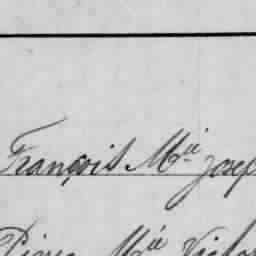 François M^ie Josep
Pierre M^ie Victo